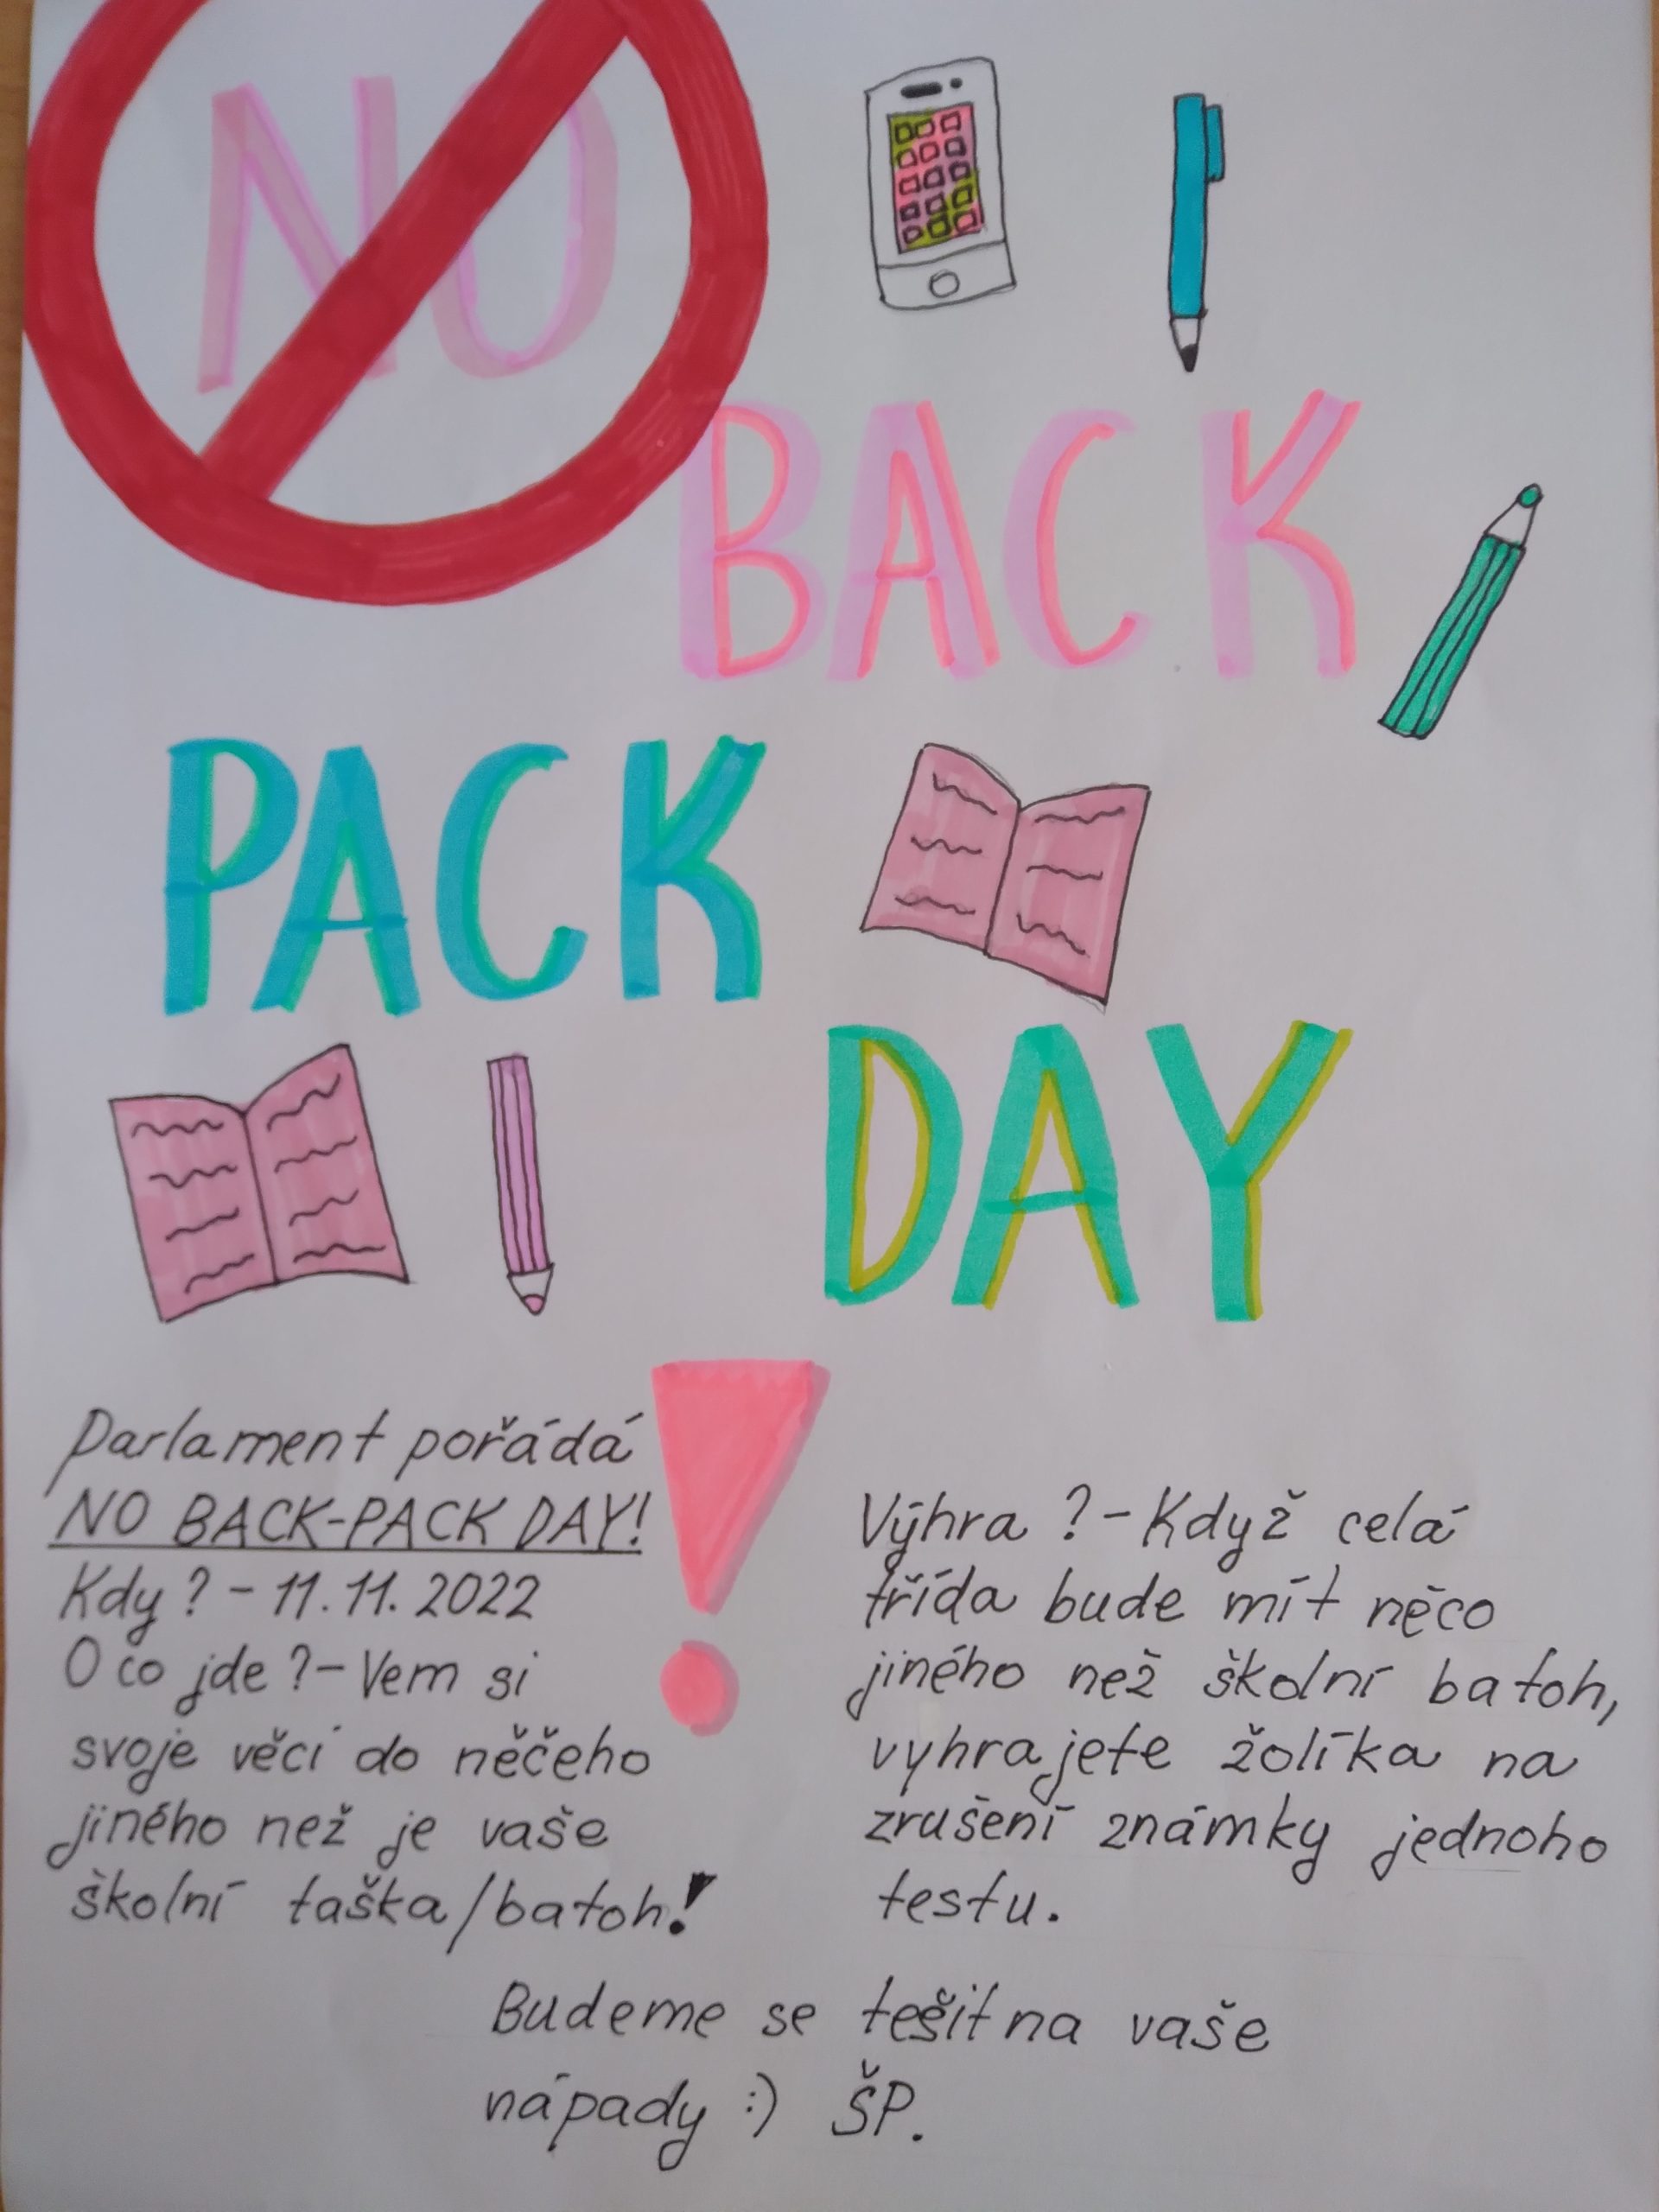 NO
BACK
PACK
DAY
!
Parlament pořádá
NO BACK-PACK DAY!
Kdy? - 11.11.2022
O co jde? - Vem si
svoje věci do něčeho
jiného než je vaše
školní taška/batoh!
Výhra? - Když celá
třída bude mít něco
jiného než školní batoh,
vyhrajete žolíka na
zrušení známky jednoho
testu.
Budeme se těšit na vaše
nápady :) ŠP.